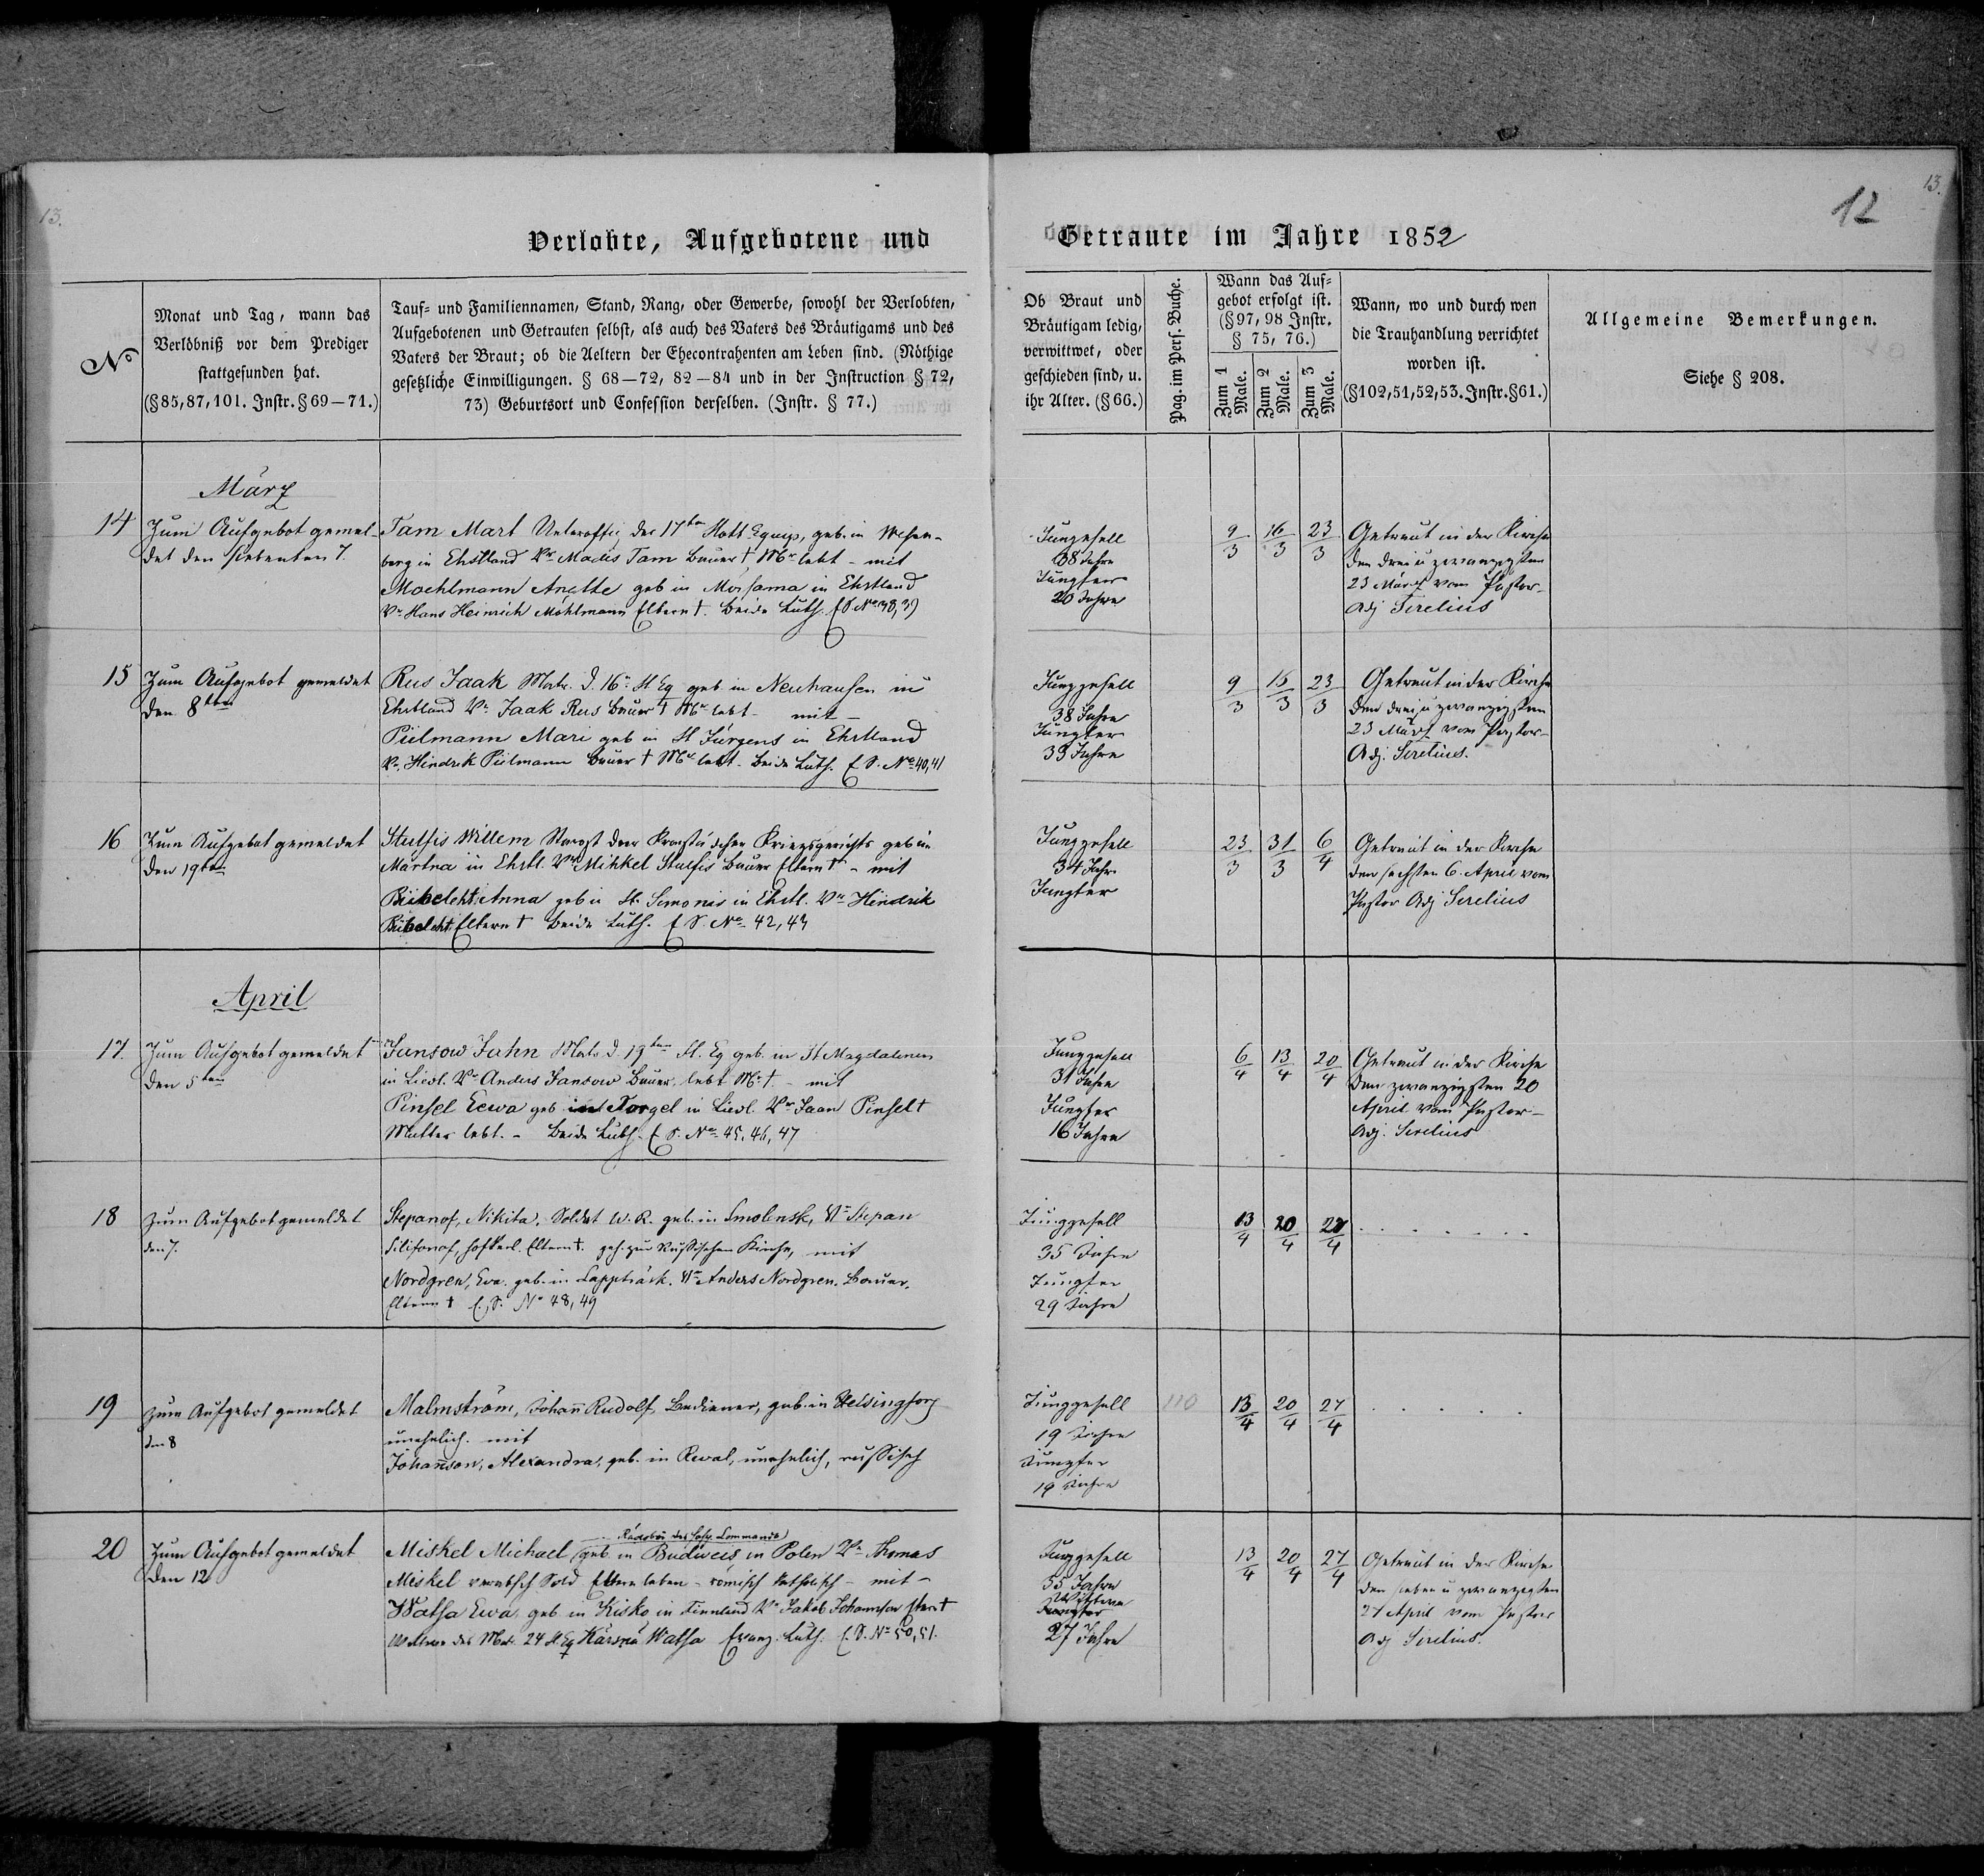 13.
13.
12
Verlobte, Aufgebotene und Getraute im Jahre 1852
No
Monat und Tag, wann das
Verlöbniß vor dem Prediger
stattgefunden hat.
(§85,87,101. Instr. §69—71.)
Tauf- und Familiennamen, Stand, Rang, oder Gewerbe, sowohl der Verlobten,
Aufgebotenen und Getrauten selbst, als auch des Vaters des Bräutigams und des
Vaters der Braut; ob die Aeltern der Ehecontrahenten am Leben sind. (Nöthige
gesetzliche Einwilligungen. § 68—72, 82—84 und in der Instruction § 72,
73) Geburtsort und Confession derselben. (Instr. § 77.)
Ob Braut und
Bräutigam ledig,
verwittwet, oder
geschieden sind, u.
ihr Alter. (§ 66.)
Pag. im Pers. Buche.
Wann das Auf-
gebot erfolgt ist.
(§ 97, 98 Instr.
§ 75, 76.)
Zum 1 Male.
Zum 2 Male.
Zum 3 Male.
Wann, wo und durch wen
die Trauhandlung verrichtet
worden ist.
(§102,51,52,53. Instr. §61.)
Allgemeine Bemerkungen.
Siehe § 208.
März
14
Zum Aufgebot gemel-
det den siebenten 7.
Tam Mart Unteroffic. der 17ten Flott Equip, geb. in Wesen-
berg in Ehstland Vr Madis Tam Bauer †, Mr lebt - mit
Maehlmann Anette geb in in Ehstland
Vr Hans Heinrich Mählmann Eltern †. Beide Luth. E S No 38, 39
Junggesell
38 Jahre
Jungfer
20 Jahre
9/3 16/3 23/3
Getraut in der Kirche
den drei u zwanzigsten
23 März vom Pastor-
Adj Sirelius
15
Zum Aufgebot gemeldet
den 8ten
Rus Jaak Matr. d. 16n Fl Eq geb in Neuhausen in
Ehstland Vr Jaak Rus Bauer † Mr lebt - mit -
Piilmann Mari geb in St Jürgens in Ehstland
Vr. Hindrik Piilmann Bauer † Mr lebt. Beide Luth. E S. No 40, 41
Junggesell
38 Jahre
Jungfer
33 Jahre
9/3 16/3 23/3
Getraut in der Kirche
den drei u zwanzigsten
23 März vom Pastor-
Adj. Sirelius.
16
Zum Aufgebot gemeldet
den 19ten
Willem geb in
Märtna in Ehstl. Vr Mihkel Bauer Eltern † - mit
Anna geb in St. Simonis in Ehstl. Vr Hindrik
Eltern † Beide Luth. E S. No 42, 43
Junggesell
34 Jahre
Jungfer
23/3 31/3 6/4
Getraut in der Kirche
den sechsten 6. April vom
Pastor Adj Sirelius
April
17.
Zum Aufgebot gemeldet
den 5ten
Jansow Jahn Matr. d. 19ten Fl. Eq geb. in St Magdalenen
in Livl. Vr Anders Jansow Bauer, lebt Mr †. - mit
Pinsel Eewa geb in Torgel in Livl. Vr Jaan Pinsel †
Mutter lebt. - Beide Luth. E S. No 45, 46, 47
Junggesell
31 Jahre
Jungfer
16 Jahre
6/4 13/4 20/4
Getraut in der Kirche
den zwanzigsten 20
April vom Pastor-
Adj. Sirelius
18
Zum Aufgebot gemeldet
den 7.
Stepanof, Nikita, Soldat geb. in Smolensk, Vr Stepan
Eltern †. geh. zur Russischen Kirche, mit
Nordgren, Eva. geb. in Lappträsk. Vr Anders Nordgren. Bauer.
Eltern † E. S. No 48, 49
Junggesell
35 Jahre
Jungfer
29 Jahre
13/4 20/4 27/4
. . . . . .
19
Zum Aufgebot gemeldet
den 8
Malmström, Johann Rudolf, Bediener, geb. in Helsingfors
unehelich. mit
Johannson, Alexandra, geb. in Reval, unehelich, russisch
Junggesell
19 Jahre
Jungfer
19 Jahre
110
13/4 20/4 27/4
. . . . .
20
Zum Aufgebot gemeldet
den 12
Miskel Michael geb in Budweis in Polen Vr Thomas
Miskel Sold Eltern leben - römisch katholisch - mit -
Watha Ewa, geb in Kisko in Finnland Vr Jakob Johannson Eltern †
Wittwe des Matr. 24 Fl Eq Watha Evang. Luth. E. S. No 50, 51.
Junggesell
35 Jahre
Wittwe
27 Jahre
13/4 20/4 27/4
Getraut in der Kirche
den sieben u zwanzigsten
27 April vom Pastor
Adj Sirelius.